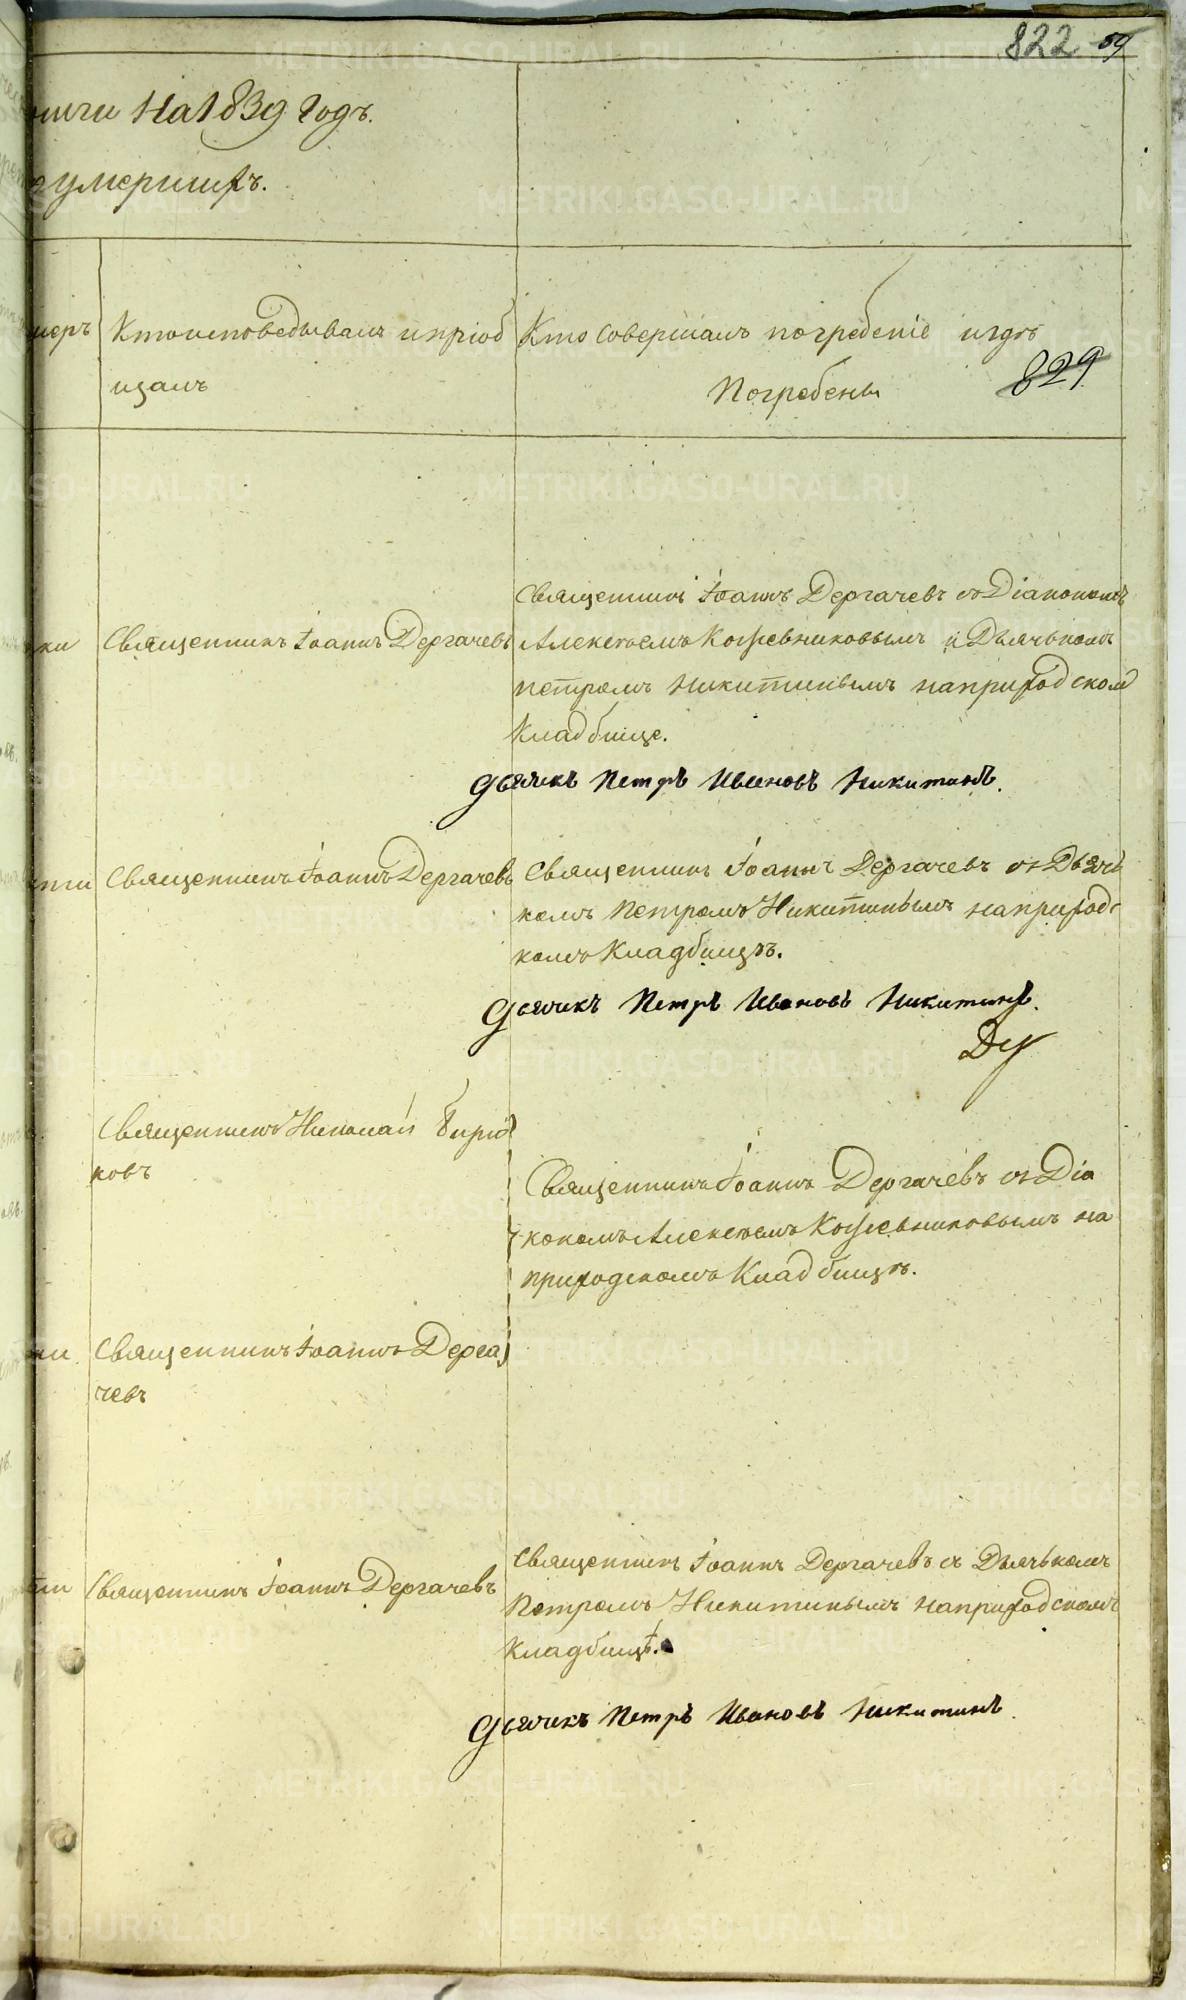 822 59
ниги На 1839 Годъ.
умершихъ.
меръ
Кто исповедывалъ и пріоб
щалъ
Кто Совершалъ погребеніе и гдѣ
Погребены
829
ки
Священникъ Іоаннъ Дергачевъ
Священникъ Іоаннъ Дергачевъ съ Діакономъ
Алексѣемъ Кожевниковымъ и Дьячькомъ
Петромъ Никитинымъ на приходском
Кладбище.
Дьячекъ Петръ Ивановъ Никитинъ.
Священникъ Іоаннъ Дергачевъ
Священникъ Іоаннъ Дергачевъ съ Дьячь
комъ Петромъ Никитинымъ на приходс
комъ Кладбищѣ.
Дьячекъ Петръ Ивановъ Никитинъ.
Священникъ Николай Бирю
ковъ
Священникъ Іоаннъ Дергачевъ съ Діа
кономъ Алексѣемъ Кожевниковымъ на
приходскомъ Кладбищѣ.
Священникъ Іоаннъ Дерга
чевъ
Священникъ Іоаннъ Дергачевъ
Священникъ Іоаннъ Дергачевъ съ Дьячькомъ
Петромъ Никитинымъ на приходскомъ
Кладбищѣ.
Дьячекъ Петръ Ивановъ Никитинъ.
METRIKI.GASO-URAL.RU